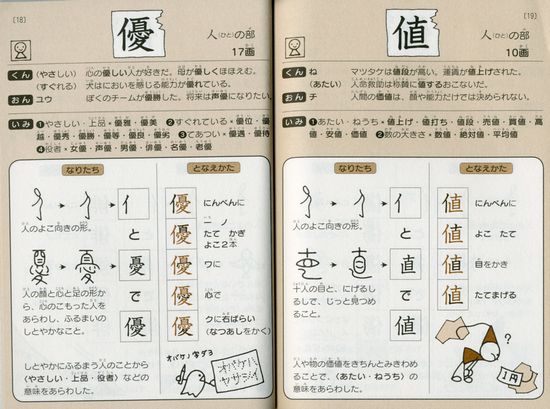 [18]
優
人(ひと)の部
17画
くん
(やさしい) 心の優しい人が好きだ。母が優しくほほえむ。
(すぐれる) 犬はにおいを感じる能力が優れている。
おん
ユウ ぼくのチームが優勝した。将来は声優になりたい。
いみ
❶やさしい・上品•優雅・優美 ❷すぐれている•優位・優
越・優秀・優勝・優等・優良・優劣 ❸てあつい•優遇・優待
❹役者•女優・声優・男優・俳優・名優・老優
なりたち
イ
人のよこ向きの形。
と
憂
人の顔と心と足の形か
ら、心のこもった人を
あらわし、ふるまいの
しとやかなこと。
で
優
しとやかにふるまう人のことから
〈やさしい・上品・役者〉などの
意味をあらわした。
となえかた
優 にんべんに
優 一ノ
たて かぎ
よこ2本
優 ワに
優 心で
優 クに右ばらい
(なつあしをかく)
オバケノ字ダヨ
オバケハ
ヤサシイ
[19]
値
人(ひと)の部
10画
くん
ね マツタケは値段が高い。運賃が値上げされた。
(あたい) 人命救助は称賛に値するおこないだ。
おん
チ 人間の価値は、顔や能力だけでは決められない。
いみ
❶あたい・ねうち•値上げ・値打ち・値段・売値・買値・高
値・安値・価値 ❷数の大きさ•数値・絶対値・平均値
なりたち
イ
人のよこ向きの形。
と
直
十人の目と、にげかくし
るしで、じっと見つめ
ること。
で
値
人や物の価値をきちんとみきわめ
ることで、〈あたい・ねうち〉の
意味をあらわした。
となえかた
値 にんべんに
値 よこ たて
値 目をかき
値 たてまげる
?
1円